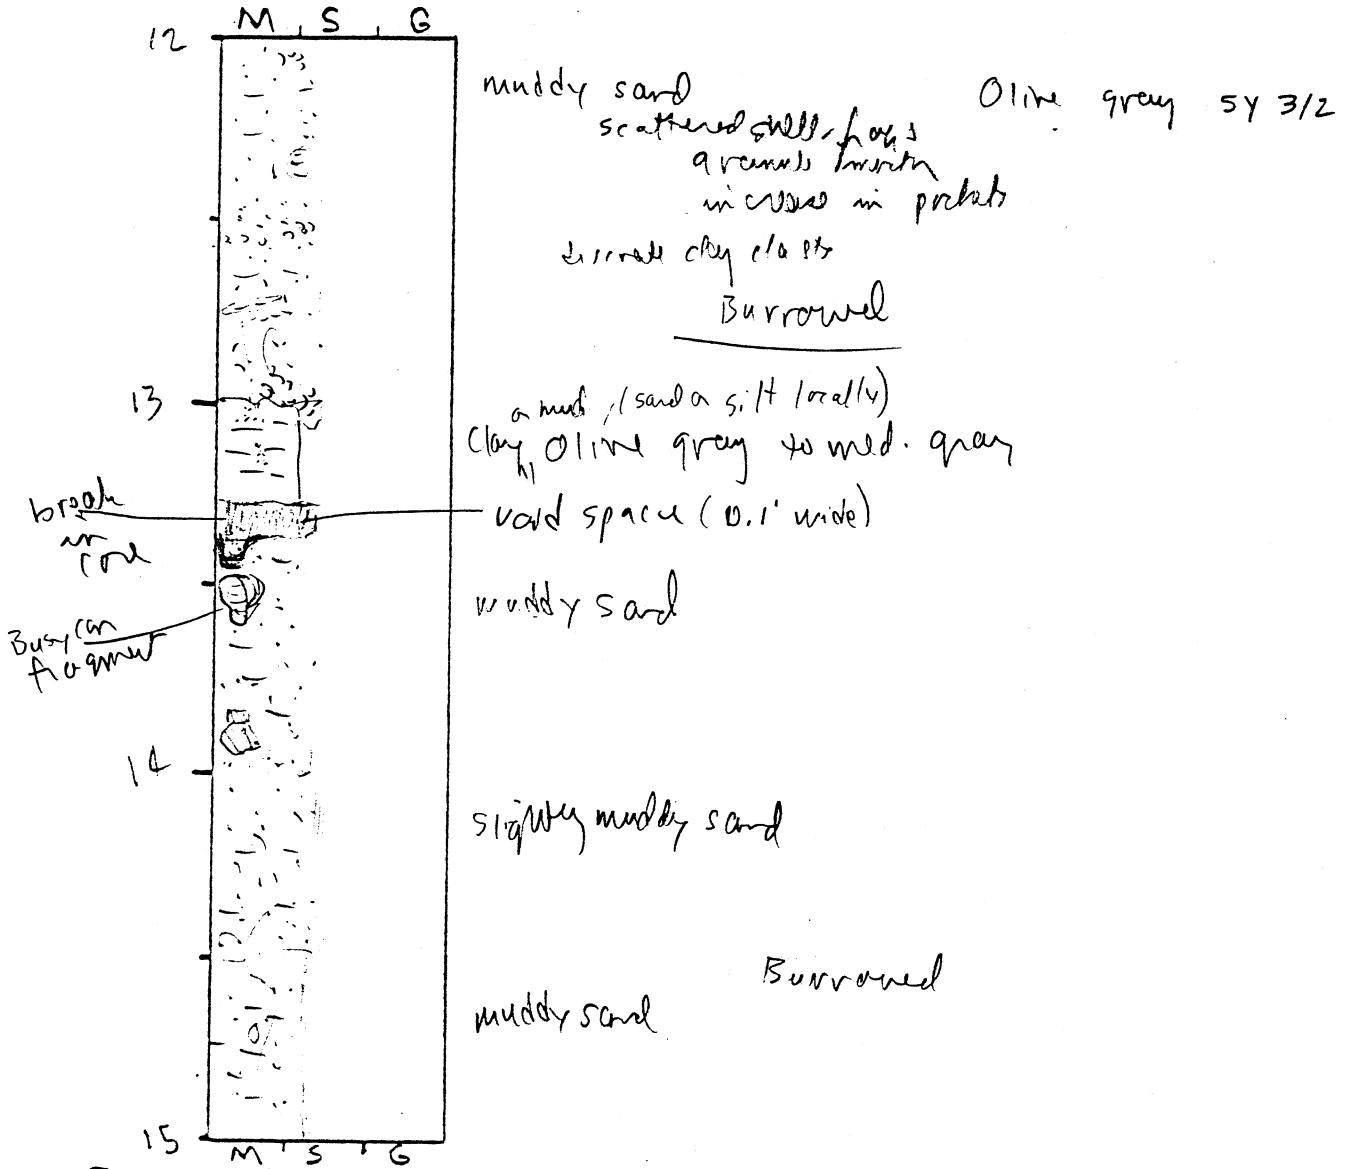 M S G
12
muddy sand
Olive gray 5Y 3/2
scattered shell frags
increase in pockets
discrete clay clasts
Burrowed
13
mud (sand silt locally)
Clay, Olive gray to med. gray
break
in
core
void space (0.1' wide)
muddy sand
Busycon
fragment
14
slightly muddy sand
Burrowed
muddy sand
15
M S G